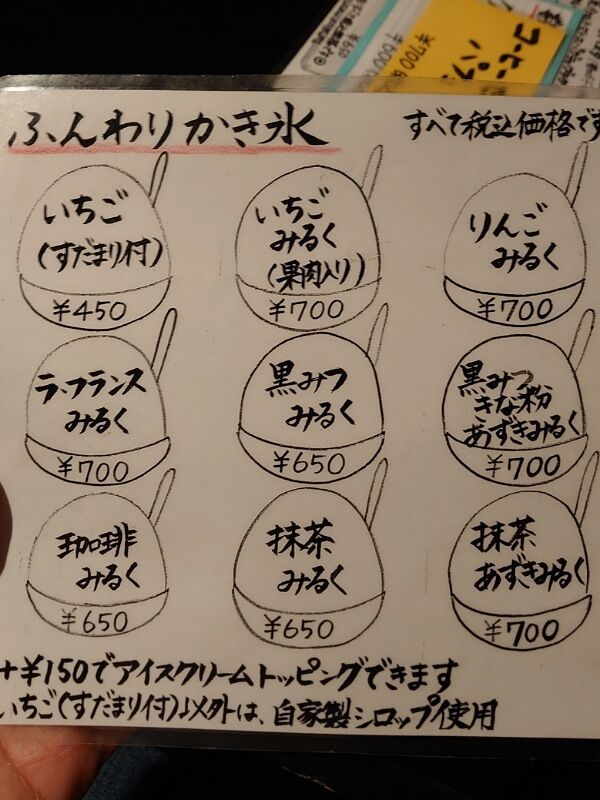 コーヒー
¥700
¥600
¥650
ふんわりかき氷
すべて税込価格です
いちご
(すだまり付)
¥450
いちご
みるく
(果肉入り)
¥700
りんご
みるく
¥700
ラ・フランス
みるく
¥700
黒みつ
みるく
¥650
黒みつ
きな粉
あずきみるく
¥700
珈琲
みるく
¥650
抹茶
みるく
¥650
抹茶
あずきみるく
¥700
+¥150でアイスクリームトッピングできます
いちご(すだまり付)以外は、自家製シロップ使用